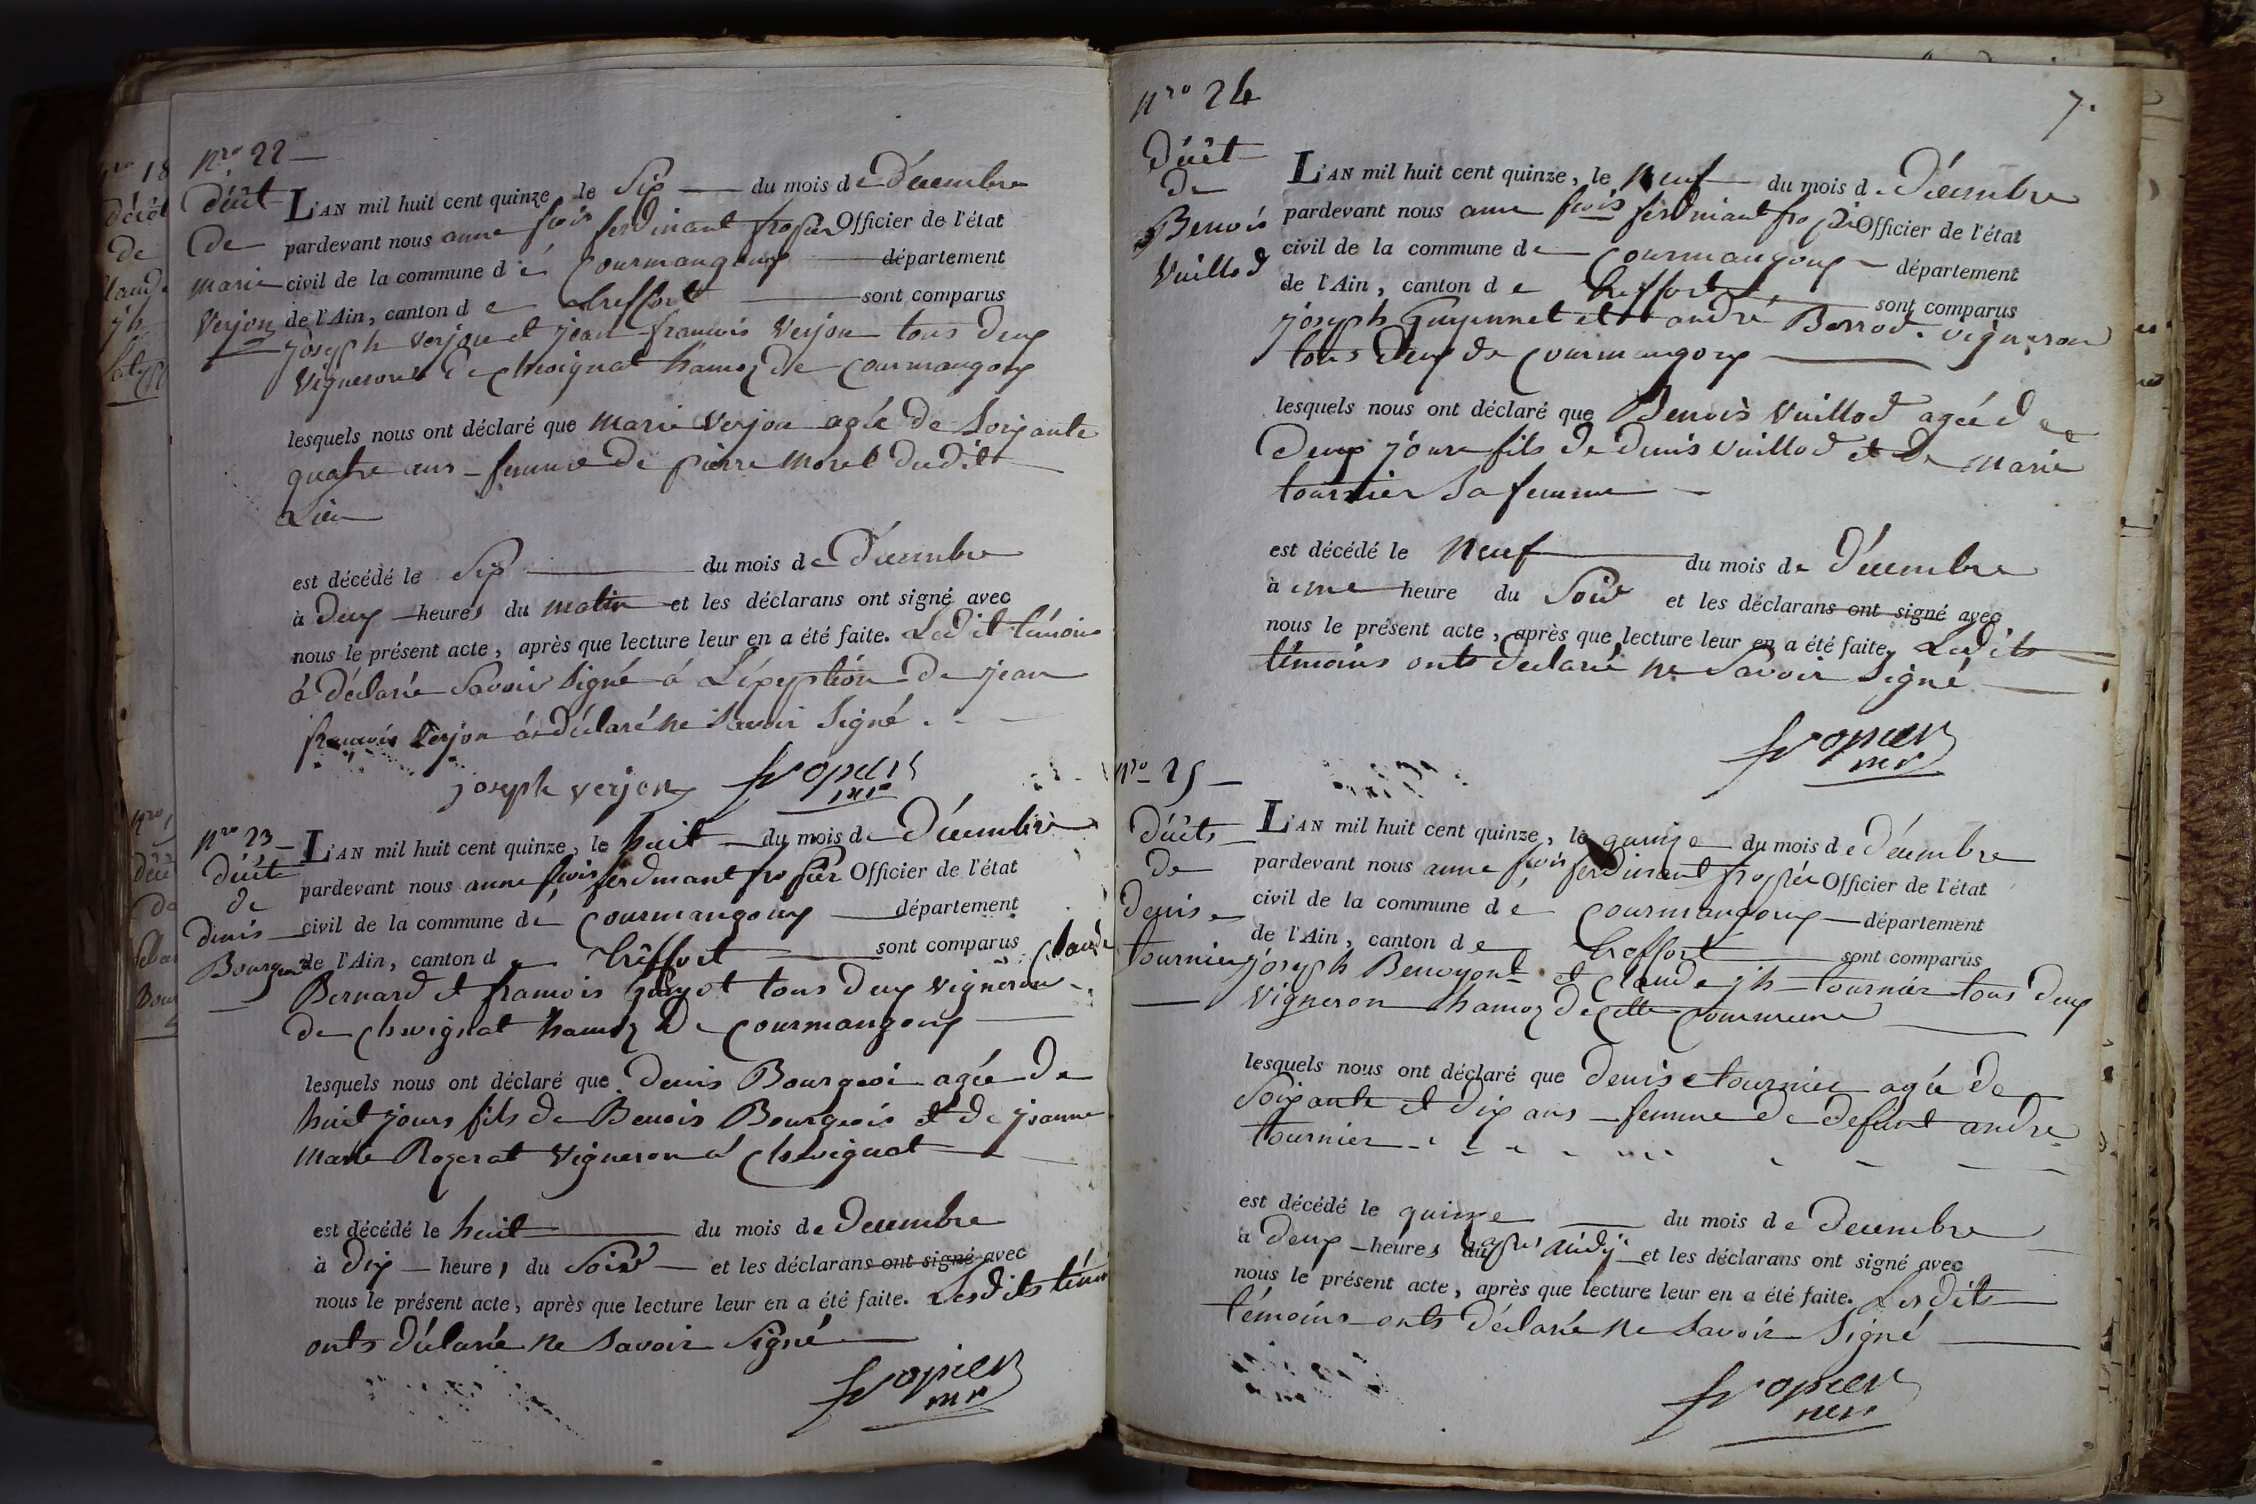 nro 22
décét
de
marie
Verjon
L'AN mil huit cent quinze, le Six du mois de décembre
pardevant nous anne fcois ferdinant fropier Officier de l'état
civil de la commune dé Courmangoux département
de l'Ain, canton de treffort sont comparus
joseph Verjon et jean francois Verjon tous deux
Vignerons de Chevignat hamoz de Courmangoux
lesquels nous ont déclaré que marie Verjon agée de Soixante
quatre ans femme de pierre morel dudit
Lieu
est décédé le Six du mois de décembre
à deux heures du matin et les déclarans ont signé avec
nous le présent acte, après que lecture leur en a été faite. Ledit témoins
à déclarié Savoir Signé á L'éxeption de jean
francois Verjon á déclaré ne Savoir Signé.
joseph verjon fropier
mr
nro 23
décét
de
denis
Bourgeois
L'AN mil huit cent quinze, le huit du mois de décembre
pardevant nous anne fcois ferdinant fropier Officier de l'état
civil de la commune dé Courmangoux département
de l'Ain, canton de treffort sont comparus Claude
Bernard et francois guyot tous deux Vigneron
de Chevignat hamoz de Courmangoux
lesquels nous ont déclaré que denis Bourgeoi agée de
huit jours fils de Benois Bourgeois et de jeanne
marie Rozerat Vigneron á Chevignat
est décédé le huit du mois de decembre
à dix heures du Soir et les déclarans ont signé avec
nous le présent acte, après que lecture leur en a été faite. Lesdits témoi
onts déclarié ne Savoir Signé
fropier
mr
nro 24
7.
décét
de
Benois
Vuillod
L'AN mil huit cent quinze, le neuf du mois de décembre
pardevant nous anne fcois ferdinant fropier Officier de l'état
civil de la commune de Courmangoux département
de l'Ain, canton de treffort sont comparus
joseph Guyennet et andré Borrod. Vigneron
tous deux de Courmangoux
lesquels nous ont déclaré que Benois Vuillod agée de
deux jours fils de denis Vuillod et de marie
tournier Sa femme
est décédé le neuf du mois de décembre
à une heure du Soir et les déclarans ont signé avec
nous le présent acte, après que lecture leur en a été faite, Ledits
témoins onts déclarié ne Savoir Signé
fropier
mr
nro 25
décéts
de
denise
tournier
L'AN mil huit cent quinze, le quinze du mois de décembre
pardevant nous anne fcois ferdinant fropier Officier de l'état
civil de la commune dé Courmangoux département
de l'Ain, canton de treffort sont comparus
joseph Benoyont et Claude jh tournier tous deux
Vigneron hamoz de Cette Commune
lesquels nous ont déclaré que denise tournier agée de
Soixante et dix ans femme de defunt andre
tournier
est décédé le quinze du mois de decembre
à deux heures du après midy et les déclarans ont signé avec
nous le présent acte, après que lecture leur en a été faite. Lesdits
témoins onts déclarié ne Savoir Signé
fropier
mr